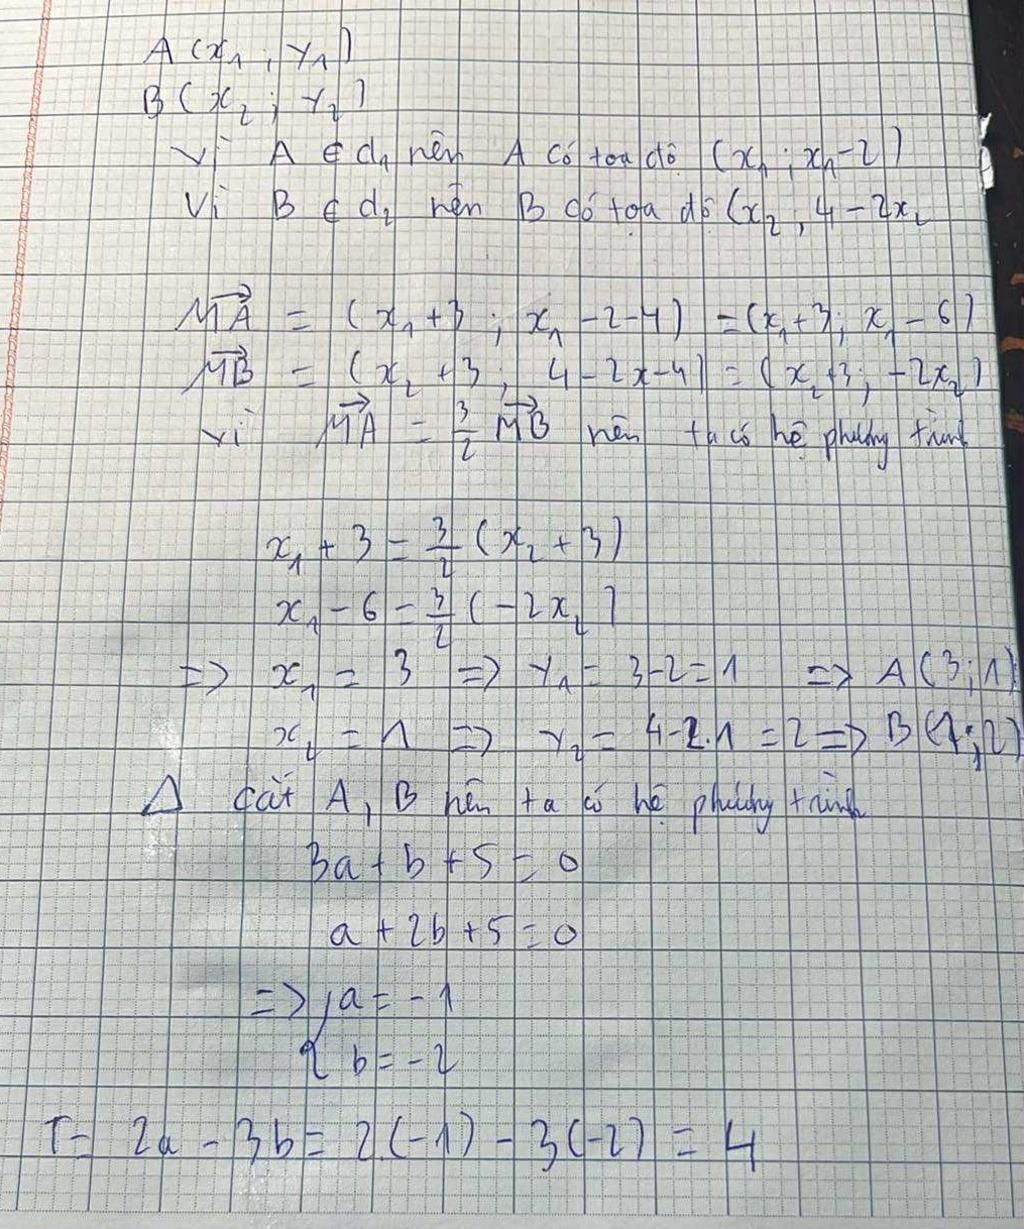 A (x₁ ; y₁)
B (x₂ ; y₂)
Vì A ∈ d₁ nên A có toạ độ (x₁ ; x₁-2)
Vì B ∈ d₂ nên B có tọa độ (x₂ , 4 - 2x₂
MA→ = (x₁ + 3 ; x₁ - 2 - 4) = (x₁+3 ; x₁ - 6)
MB→ = (x₂ + 3 ; 4 - 2x - 4) = (x₂+3 ; -2x₂)
vì MA→ = 3/2 MB→ nên ta có hệ phương trình
x₁ + 3 = 3/2 (x₂ + 3)
x₁ - 6 = 3/2 (-2x₂)
=> x₁ = 3 => y₁ = 3-2 = 1 => A (3;1)
x₂ = 1 => y₂ = 4-2.1 = 2 => B (1;2)
Δ cắt A, B nên ta có hệ phương trình
3a + b + 5 = 0
a + 2b + 5 = 0
=> { a = -1
b = -2
T = 2a - 3b = 2.(-1) - 3(-2) = 4